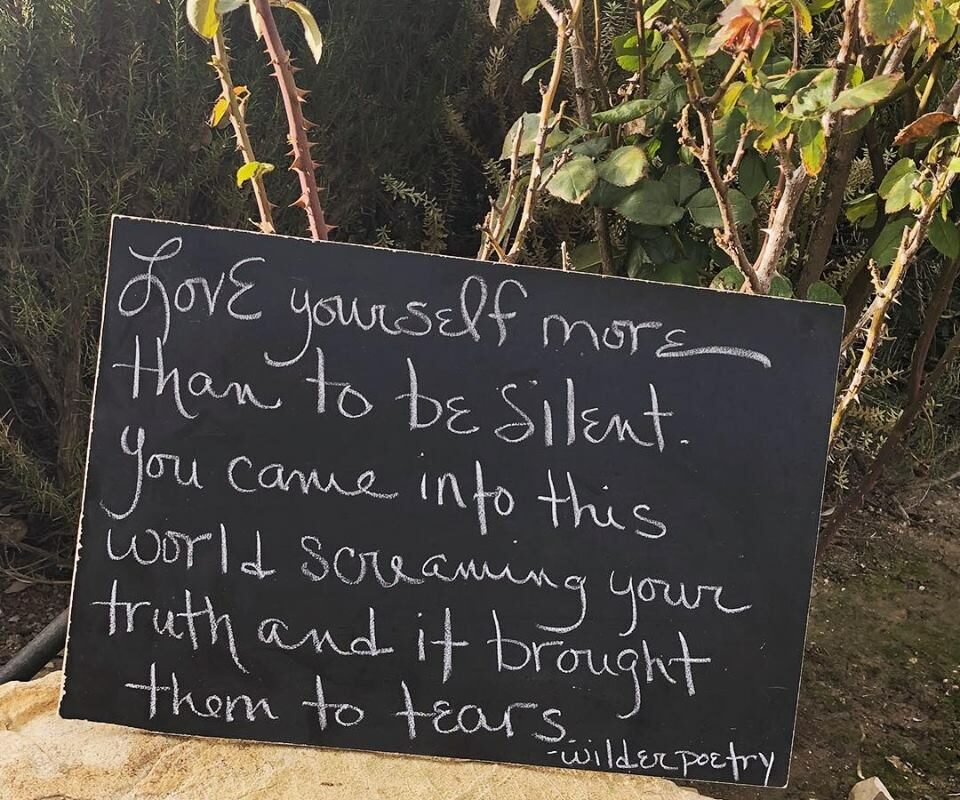 LovE yourself more
than to be silent.
You came into this
world screaming your
truth and it brought
them to tears
-wilderpoetry